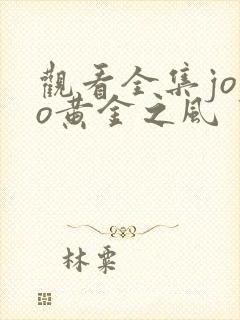 觀看全集jo
o黃金之風
林粟